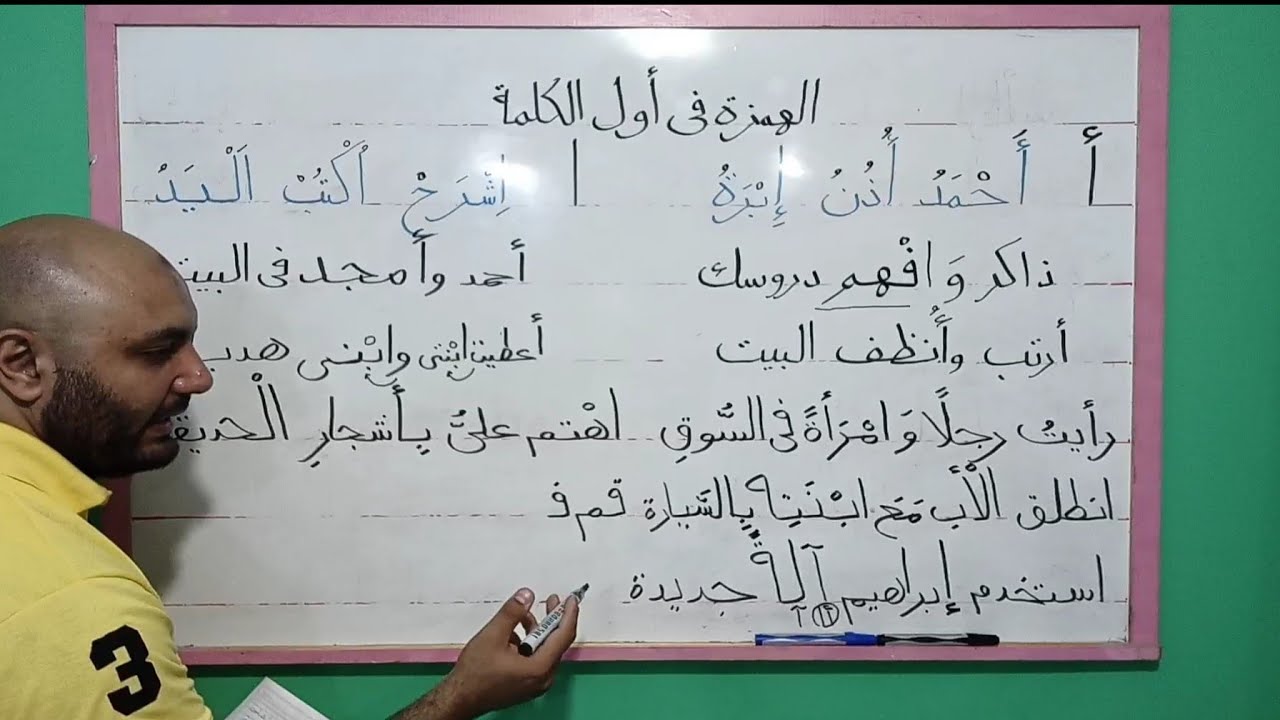 الهمزة فى أول الكلمة
أ أَحْمَدُ أُذُنُ إِبْرَةُ ا اِشْرَحْ اُكْتُبْ اَلْيَدُ
ذاكر وَ افْهم دروسك أحمد وأمجد فى البيت
أرتب وأُنظف البيت أعطيت ابْنتى وابْنى
رأيتُ رجلًا وَ امْرَأةً فى السُّوقِ اهْتم علىُّ بِأشجارِ الْحديقة
انطلق الْأب مَعَ ابْنَتِه بِالسَّيارة قم ف
استخدم إبراهيم آلةً جديدة
أا آ
3